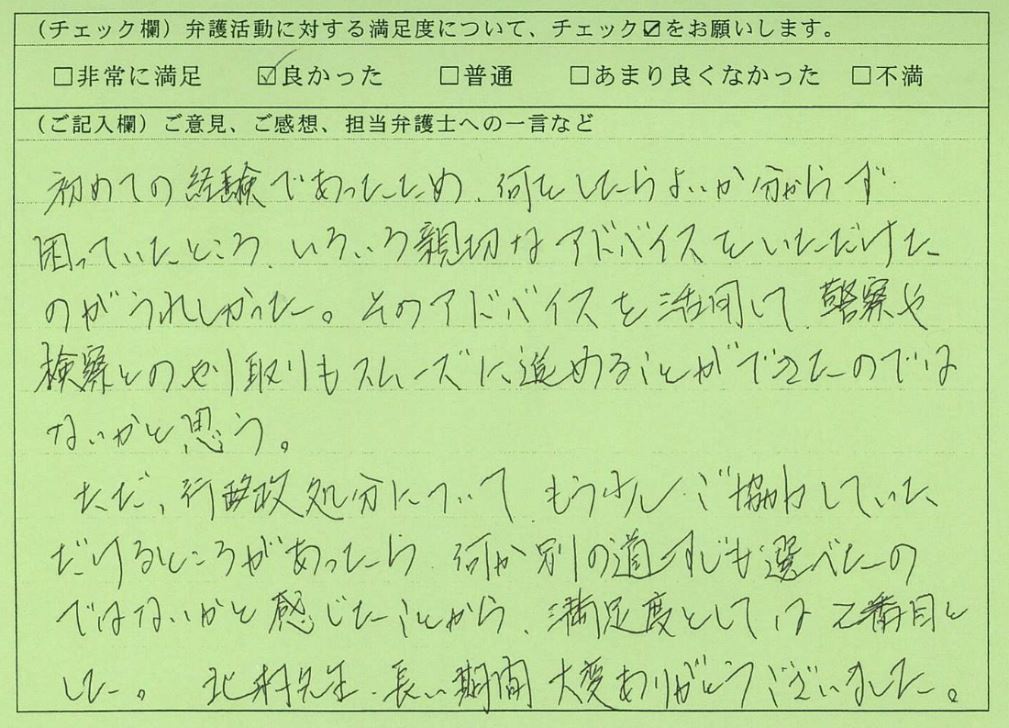 （チェック欄）弁護活動に対する満足度について、チェック☑をお願いします。
□非常に満足　☑良かった　□普通　□あまり良くなかった　□不満
（ご記入欄）ご意見、ご感想、担当弁護士への一言など
初めての経験であったため、何をしたらよいか分からず
困っていたところ、いろいろ親切なアドバイスをいただけた
のがうれしかった。そのアドバイスを活用して、警察や
検察とのやり取りもスムーズに進めることができたのでは
ないかと思う。
ただ、行政処分について、もう少しご協力していた
だけるところがあったら、何か別の道すじも選べたの
ではないかと感じたことから、満足度としては2番目と
した。北村先生、長い期間大変ありがとうございました。